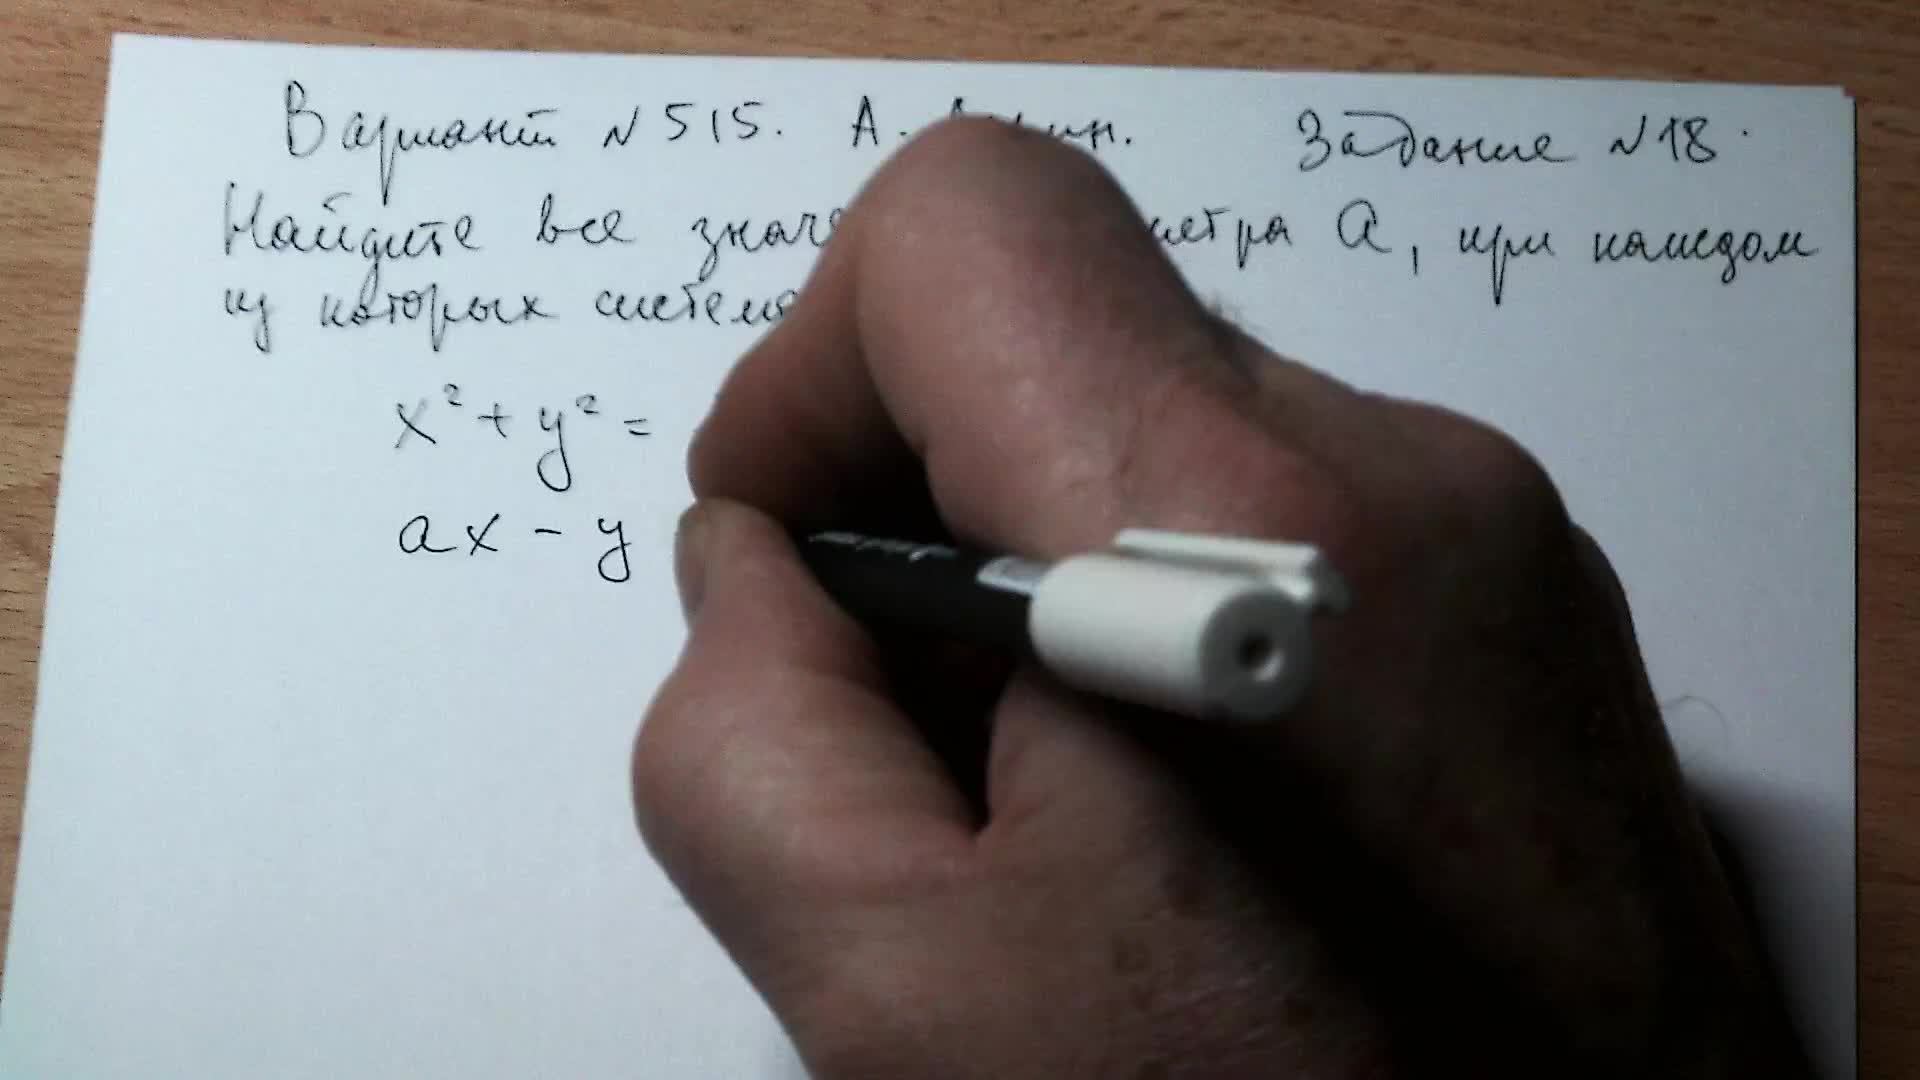 Вариант №515. А. Задание №18.
Найдите все a, при каждом
из которых
x² + y² =
ax - y